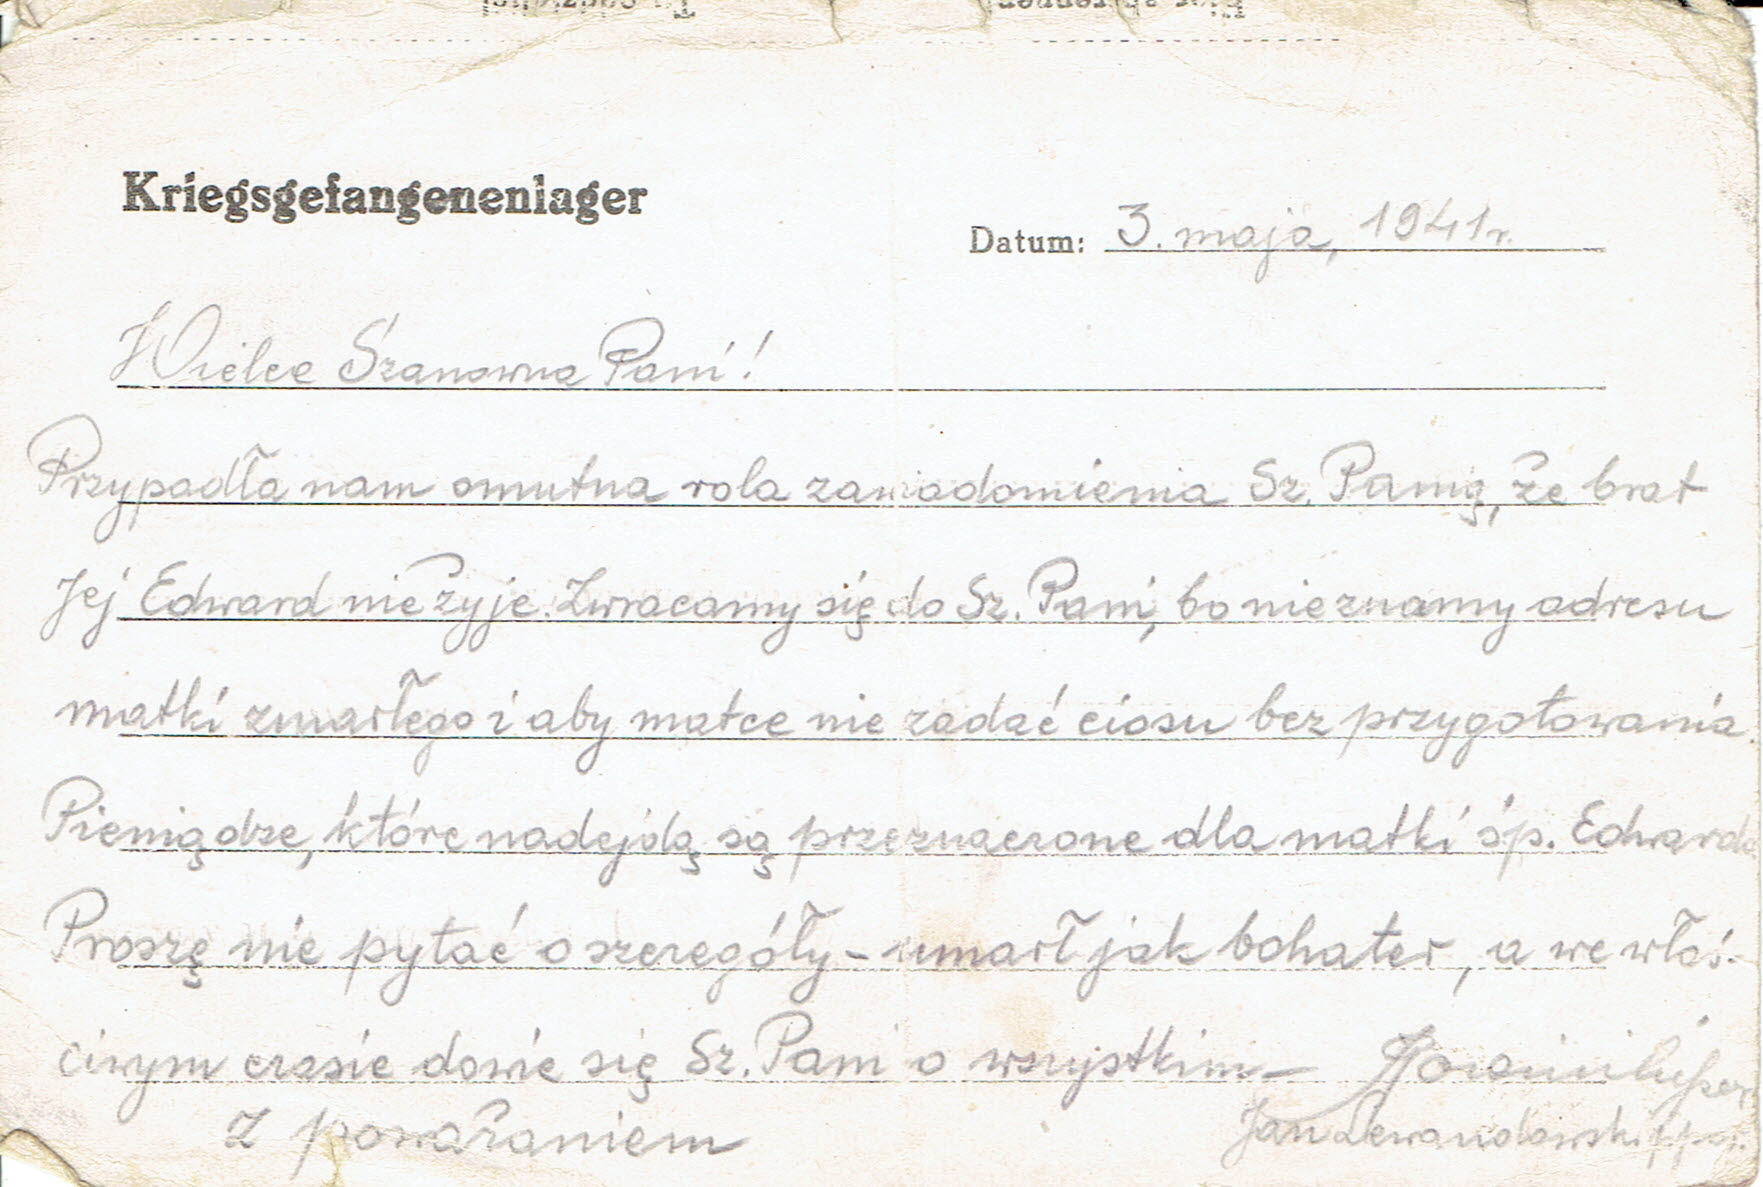 Kriegsgefangenenlager
Datum: 3. maja, 1941 r.
Wielce Szanowna Pani!
Przypadła nam smutna rola zawiadomienia Sz. Panią, że brat
Jej Edward nie żyje. Zwracamy się do Sz. Pani, bo nie znamy adresu
matki zmarłego i aby matce nie zadać ciosu bez przygotowania.
Pieniądze, które nadejdą są przeznaczone dla matki śp. Edwarda
Proszę nie pytać o szczegóły – umarł jak bohater, a we właś-
ciwym czasie dowie się Sz. Pani o wszystkim –
Z poważaniem
Jan Lewandowski ppor.